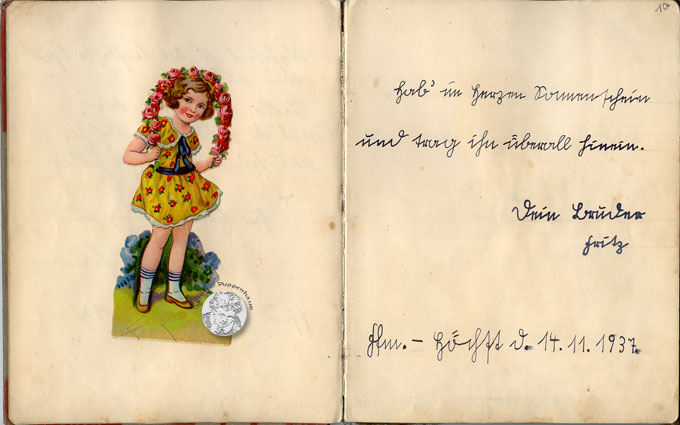 Puppenhaus
10
Hab' im Herzen Sonnenschein
und trag ihn überall hinein.
Dein Bruder
Fritz
Ffm. – Höchst d. 14.11.1937.